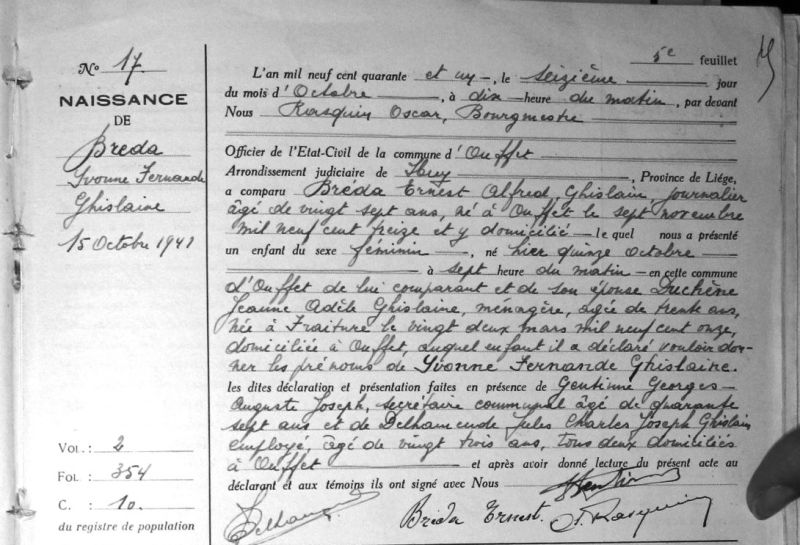 5e feuillet
No 17.
NAISSANCE
DE
Bréda
Yvonne Fernande
Ghislaine
15 Octobre 1941
L'an mil neuf cent quarante et un, le seizième jour
du mois d'Octobre, à dix heure du matin, par devant
Nous Rasquin Oscar, Bourgmestre
Officier de l'Etat-Civil de la commune d'Ouffet
Arrondissement judiciaire de Huy, Province de Liége,
a comparu Bréda Ernest Alfred Ghislain, journalier
âgé de vingt sept ans, né à Ouffet le sept novembre
mil neuf cent treize et y domicilié – le quel nous a présenté
un enfant du sexe féminin, né hier quinze octobre
à sept heure du matin – en cette commune
d'Ouffet de lui comparant et de son épouse Duchêne
Jeanne Adèle Ghislaine, ménagère, agée de trente ans,
née à Fraiture le vingt deux mars mil neuf cent onze,
domiciliée à Ouffet, auquel enfant il a déclaré vouloir don-
ner les prénoms de Yvonne Fernande Ghislaine.
les dites déclaration et présentation faites en présence de Gentinne Georges
Auguste Joseph, secrétaire communal âgé de quarante
sept ans et de Delhamende Jules Charles Joseph Ghislain
employé, âgé de vingt trois ans, tous deux domiciliés
à Ouffet et après avoir donné lecture du présent acte au
déclarant et aux témoins ils ont signé avec Nous
Bréda Ernest. O. Rasquin
Vol. : 2
Fol. : 354
C. : 10.
du registre de population